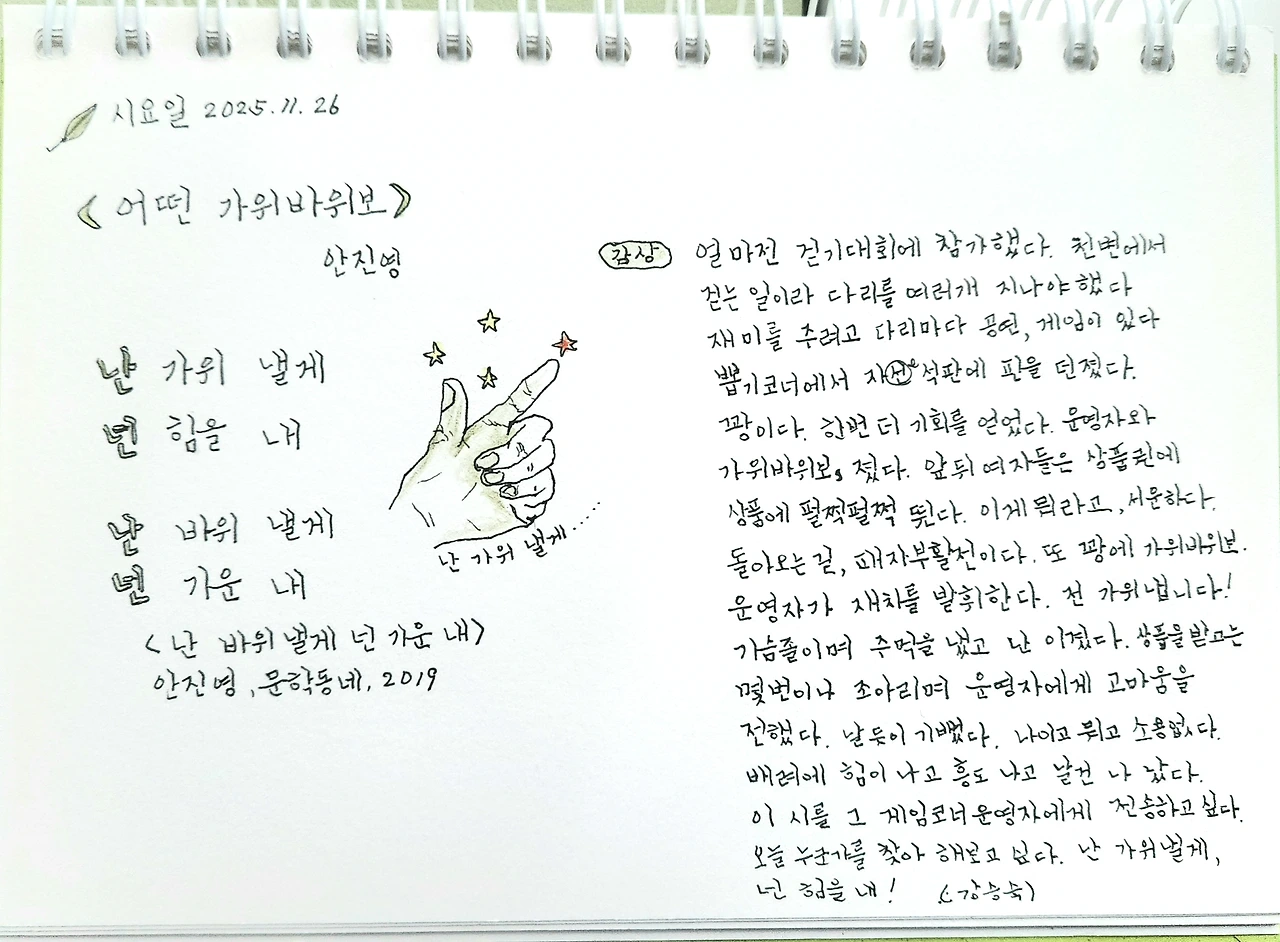 시요일 2025.11.26
《어떤 가위바위보》
안진영
난 가위 낼게
넌 힘을 내
난 바위 낼게
넌 기운 내
난 가위 낼게......
<난 바위 낼게 넌 기운 내>
안진영, 문학동네, 2019
감상
얼마전 걷기대회에 참가했다. 천변에서
걷는 일이라 다리를 여러개 지나야 했다
재미를 주려고 다리마다 공연, 게임이 있다
뽑기코너에서 자석판에 판을 던졌다.
꽝이다. 한번 더 기회를 얻었다. 운영자와
가위바위보, 졌다. 앞뒤 여자들은 상품권에
상품에 펄쩍펄쩍 뛴다. 이게 뭐라고, 서운하다.
돌아오는 길, 패자부활전이다. 또 꽝에 가위바위보.
운영자가 재치를 발휘한다. 전 가위 냅니다!
가슴졸이며 주먹을 냈고 난 이겼다. 상품을 받고는
몇번이나 조아리며 운영자에게 고마움을
전했다. 날듯이 기뻤다. 나이고 뭐고 소용없다.
배려에 힘이 나고 흥도 나고 날건 나 났다.
이 시를 그 게임코너 운영자에게 전송하고 싶다.
오늘 누군가를 찾아 해보고 싶다. 난 가위낼게,
넌 힘을 내! (강승숙)